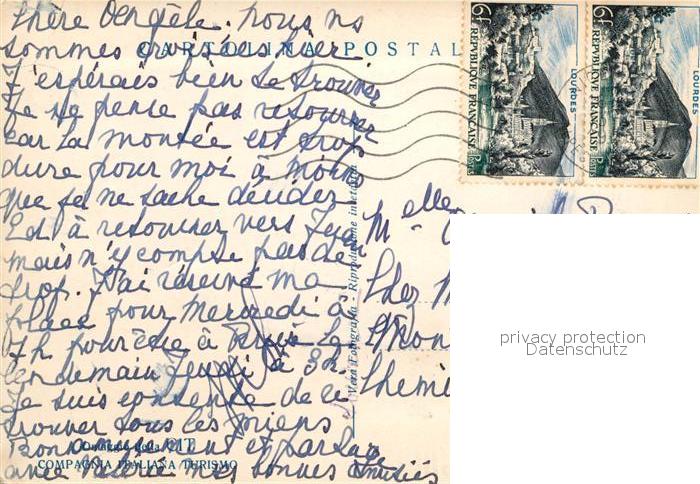 chère Angèle. nous ns
sommes croisées hier
J'espérais bien te trouver
Je ne pense pas retourner
car la montée est trop
dure pour moi à moins
que je ne sache décidez
Ed à retourner vers
mais n'y compte pas de
trop. J'ai réservé ma
place pour Mercredi à
7h pour être à Paris le
lendemain jeudi à 3h
Je suis contente de re
trouver tous les miens
Bonnement et
avec mes bonnes amitiés
CARTOLINA POSTAL
6F
REPUBLIQUE FRANÇAISE
LOURDES
POSTES
6F
REPUBLIQUE FRANÇAISE
LOURDES
Melle
Chez M
Vera Fotografia - Riproduzione interdetta
Omaggio della CIT
COMPAGNIA ITALIANA TURISMO
privacy protection
Datenschutz